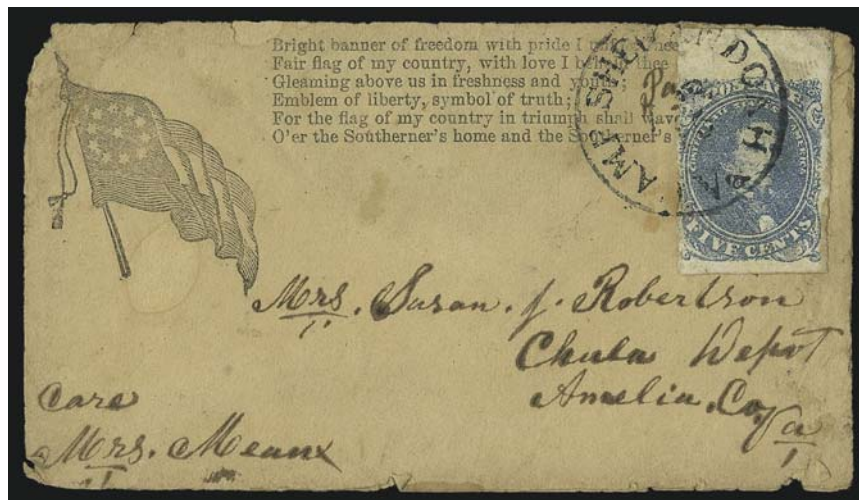 Bright banner of freedom with pride I thee
Fair flag of my country, with love I behold thee
Gleaming above us in freshness and youth;
Emblem of liberty, symbol of truth;
For the flag of my country in triumph shall wave
O'er the Southerner's home and the Southerner's
CAMP SHENANDOAH
VA
Pa
FIVE CENTS
Mrs. Susan. J. Robertson
Chula Depot
Amelia. Co.
Va
Care
Mrs. Meaux